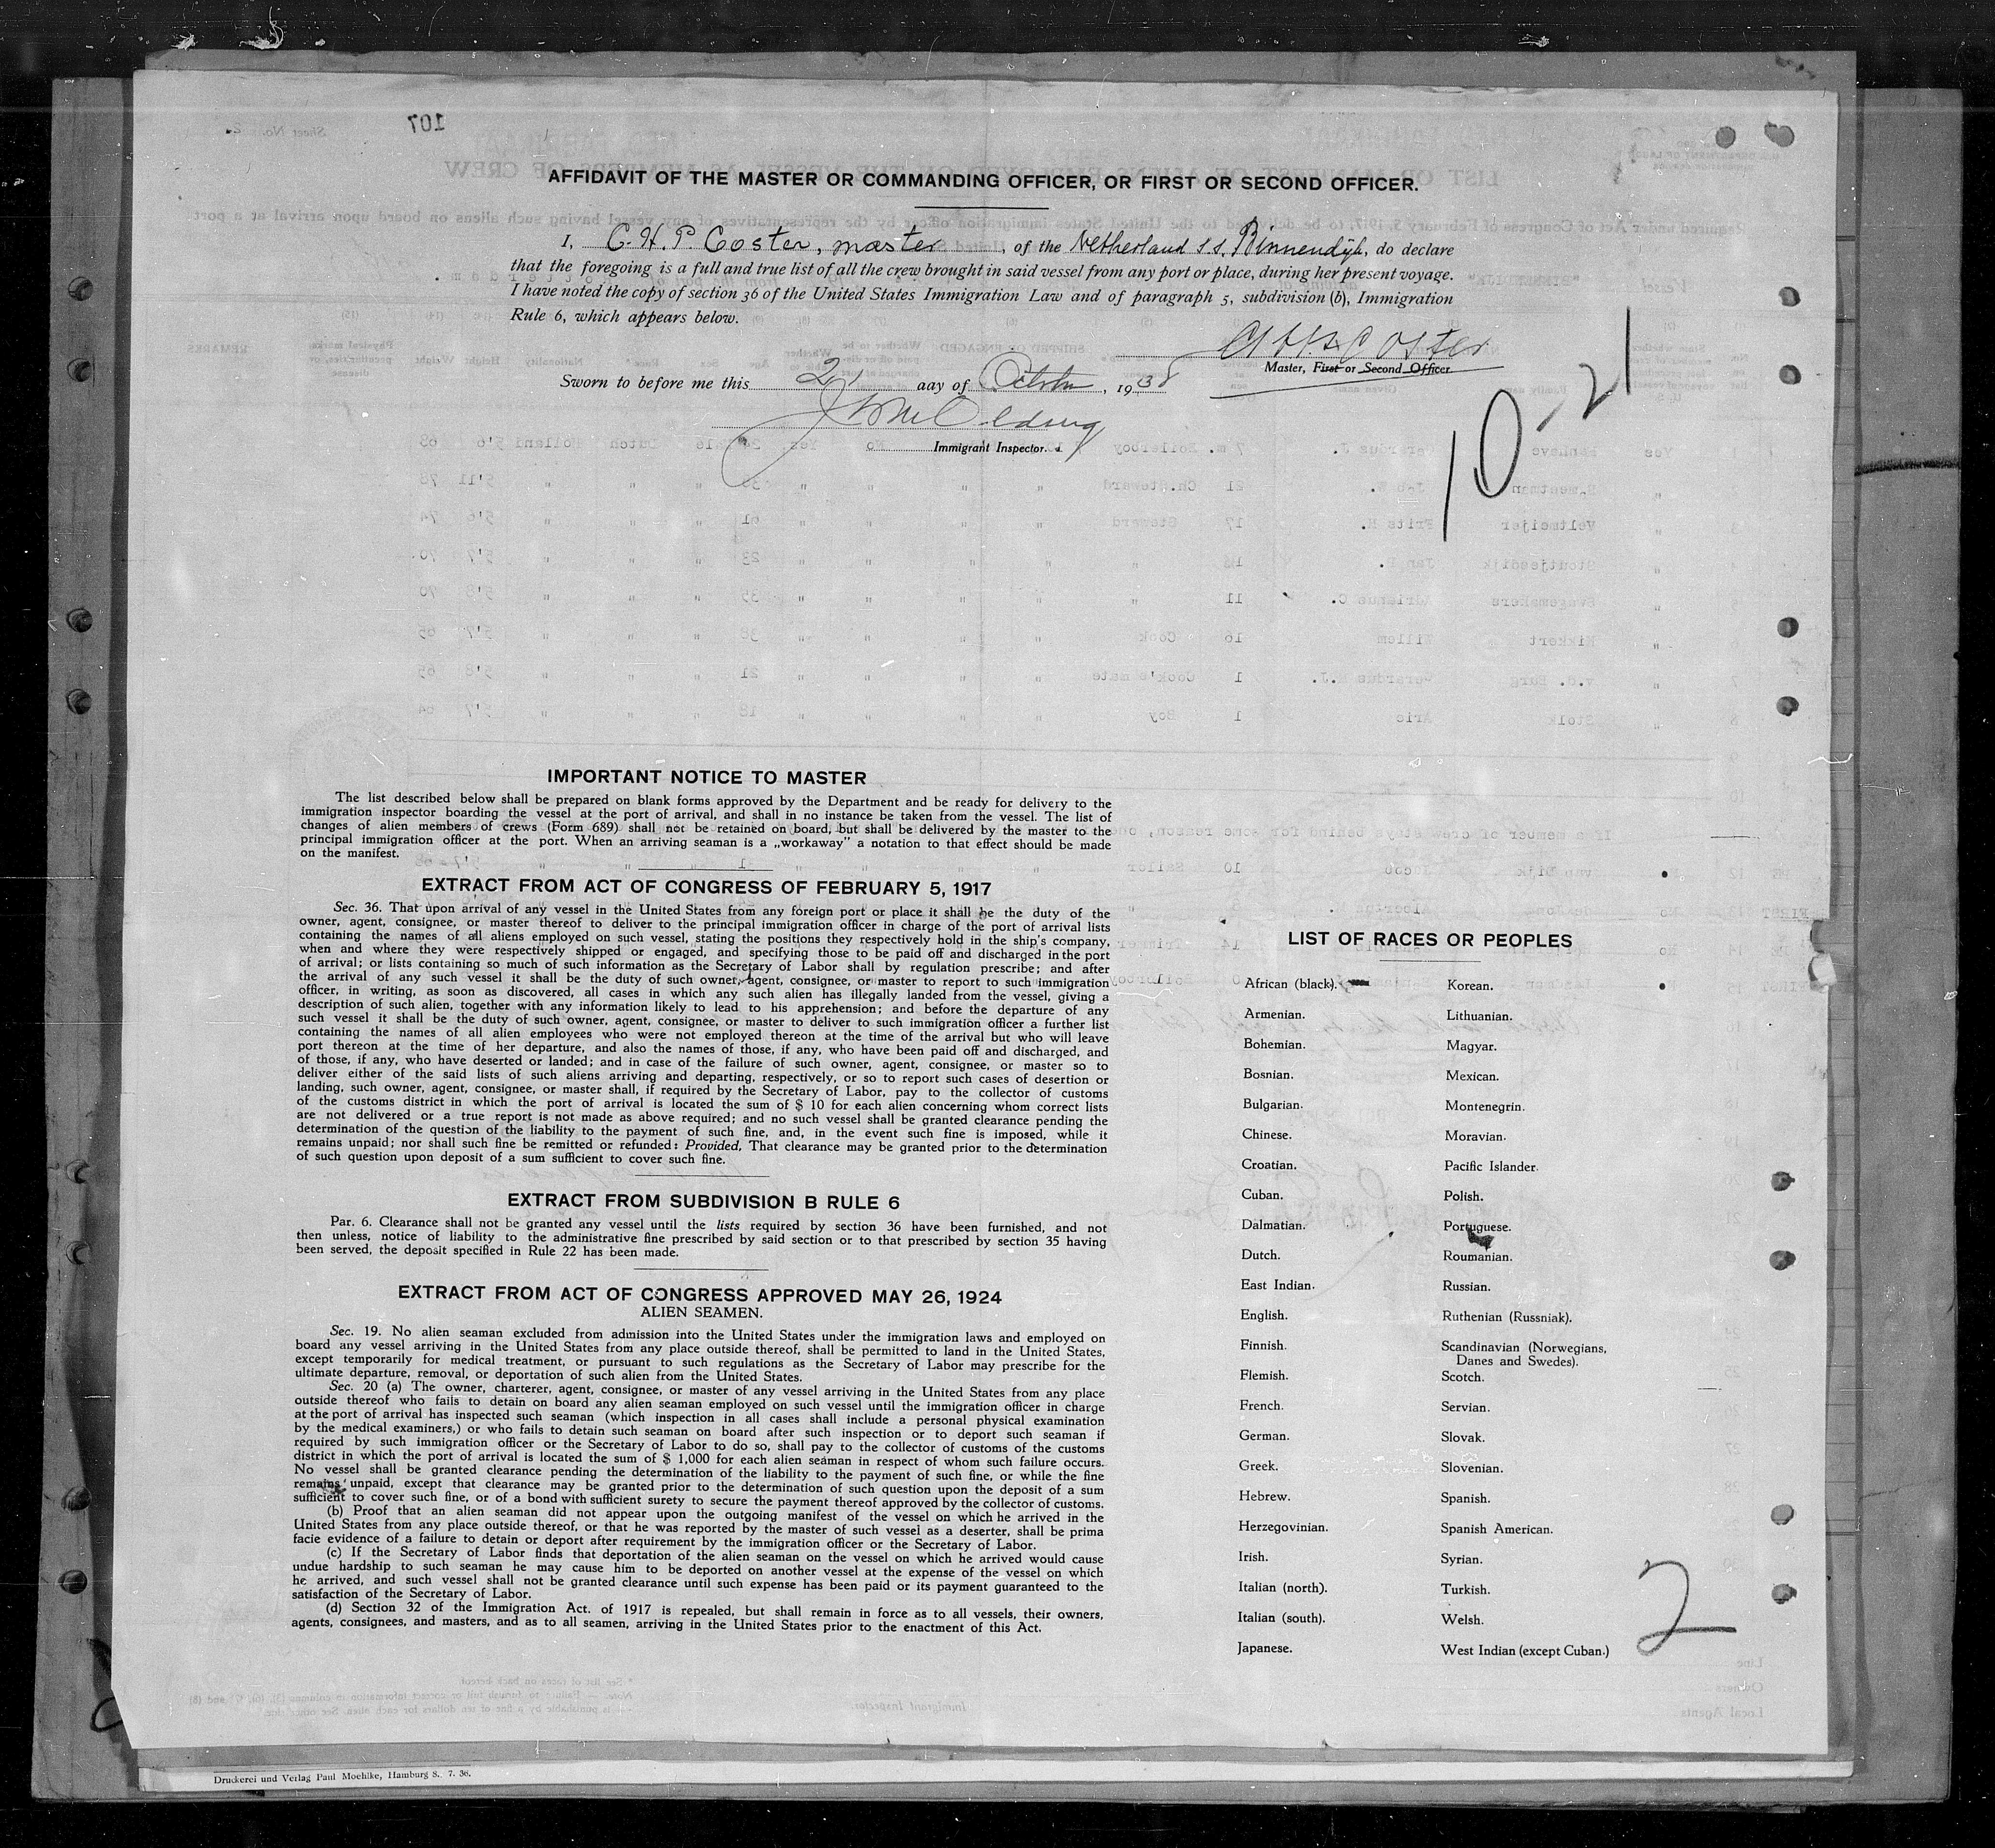 107
AFFIDAVIT OF THE MASTER OR COMMANDING OFFICER, OR FIRST OR SECOND OFFICER.
I, C. H. P. Coster, master, of the Netherland s.s. Binnendijk, do declare
that the foregoing is a full and true list of all the crew brought in said vessel from any port or place, during her present voyage.
I have noted the copy of section 36 of the United States Immigration Law and of paragraph 5, subdivision (b), Immigration
Rule 6, which appears below.
Coster
Master, First or Second Officer.
Sworn to before me this 21 day of October, 1938
Immigrant Inspector.
10-21
IMPORTANT NOTICE TO MASTER
The list described below shall be prepared on blank forms approved by the Department and be ready for delivery to the
immigration inspector boarding the vessel at the port of arrival, and shall in no instance be taken from the vessel. The list of
changes of alien members of crews (Form 689) shall not be retained on board, but shall be delivered by the master to the
principal immigration officer at the port. When an arriving seaman is a „workaway" a notation to that effect should be made
on the manifest.
EXTRACT FROM ACT OF CONGRESS OF FEBRUARY 5, 1917
Sec. 36. That upon arrival of any vessel in the United States from any foreign port or place it shall be the duty of the
owner, agent, consignee, or master thereof to deliver to the principal immigration officer in charge of the port of arrival lists
containing the names of all aliens employed on such vessel, stating the positions they respectively hold in the ship's company,
when and where they were respectively shipped or engaged, and specifying those to be paid off and discharged in the port
of arrival; or lists containing so much of such information as the Secretary of Labor shall by regulation prescribe; and after
the arrival of any such vessel it shall be the duty of such owner, agent, consignee, or master to report to such immigration
officer, in writing, as soon as discovered, all cases in which any such alien has illegally landed from the vessel, giving a
description of such alien, together with any information likely to lead to his apprehension; and before the departure of any
such vessel it shall be the duty of such owner, agent, consignee, or master to deliver to such immigration officer a further list
containing the names of all alien employees who were not employed thereon at the time of the arrival but who will leave
port thereon at the time of her departure, and also the names of those, if any, who have been paid off and discharged, and
of those, if any, who have deserted or landed; and in case of the failure of such owner, agent, consignee, or master so to
deliver either of the said lists of such aliens arriving and departing, respectively, or so to report such cases of desertion or
landing, such owner, agent, consignee, or master shall, if required by the Secretary of Labor, pay to the collector of customs
of the customs district in which the port of arrival is located the sum of $ 10 for each alien concerning whom correct lists
are not delivered or a true report is not made as above required; and no such vessel shall be granted clearance pending the
determination of the question of the liability to the payment of such fine, and, in the event such fine is imposed, while it
remains unpaid; nor shall such fine be remitted or refunded: Provided, That clearance may be granted prior to the determination
of such question upon deposit of a sum sufficient to cover such fine.
EXTRACT FROM SUBDIVISION B RULE 6
Par. 6. Clearance shall not be granted any vessel until the lists required by section 36 have been furnished, and not
then unless, notice of liability to the administrative fine prescribed by said section or to that prescribed by section 35 having
been served, the deposit specified in Rule 22 has been made.
EXTRACT FROM ACT OF CONGRESS APPROVED MAY 26, 1924
ALIEN SEAMEN.
Sec. 19. No alien seaman excluded from admission into the United States under the immigration laws and employed on
board any vessel arriving in the United States from any place outside thereof, shall be permitted to land in the United States,
except temporarily for medical treatment, or pursuant to such regulations as the Secretary of Labor may prescribe for the
ultimate departure, removal, or deportation of such alien from the United States.
Sec. 20 (a) The owner, charterer, agent, consignee, or master of any vessel arriving in the United States from any place
outside thereof who fails to detain on board any alien seaman employed on such vessel until the immigration officer in charge
at the port of arrival has inspected such seaman (which inspection in all cases shall include a personal physical examination
by the medical examiners,) or who fails to detain such seaman on board after such inspection or to deport such seaman if
required by such immigration officer or the Secretary of Labor to do so, shall pay to the collector of customs of the customs
district in which the port of arrival is located the sum of $ 1,000 for each alien seaman in respect of whom such failure occurs.
No vessel shall be granted clearance pending the determination of the liability to the payment of such fine, or while the fine
remains unpaid, except that clearance may be granted prior to the determination of such question upon the deposit of a sum
sufficient to cover such fine, or of a bond with sufficient surety to secure the payment thereof approved by the collector of customs.
(b) Proof that an alien seaman did not appear upon the outgoing manifest of the vessel on which he arrived in the
United States from any place outside thereof, or that he was reported by the master of such vessel as a deserter, shall be prima
facie evidence of a failure to detain or deport after requirement by the immigration officer or the Secretary of Labor.
(c) If the Secretary of Labor finds that deportation of the alien seaman on the vessel on which he arrived would cause
undue hardship to such seaman he may cause him to be deported on another vessel at the expense of the vessel on which
he arrived, and such vessel shall not be granted clearance until such expense has been paid or its payment guaranteed to the
satisfaction of the Secretary of Labor.
(d) Section 32 of the Immigration Act. of 1917 is repealed, but shall remain in force as to all vessels, their owners,
agents, consignees, and masters, and as to all seamen, arriving in the United States prior to the enactment of this Act.
LIST OF RACES OR PEOPLES
African (black).
Armenian.
Bohemian.
Bosnian.
Bulgarian.
Chinese.
Croatian.
Cuban.
Dalmatian.
Dutch.
East Indian.
English.
Finnish.
Flemish.
French.
German.
Greek.
Hebrew.
Herzegovinian.
Irish.
Italian (north).
Italian (south).
Japanese.
Korean.
Lithuanian.
Magyar.
Mexican.
Montenegrin.
Moravian.
Pacific Islander.
Polish.
Portuguese.
Roumanian.
Russian.
Ruthenian (Russniak).
Scandinavian (Norwegians,
Danes and Swedes).
Scotch.
Servian.
Slovak.
Slovenian.
Spanish.
Spanish American.
Syrian.
Turkish.
Welsh.
West Indian (except Cuban.)
2
Druckerei und Verlag Paul Moehlke, Hamburg 8. 7. 36.